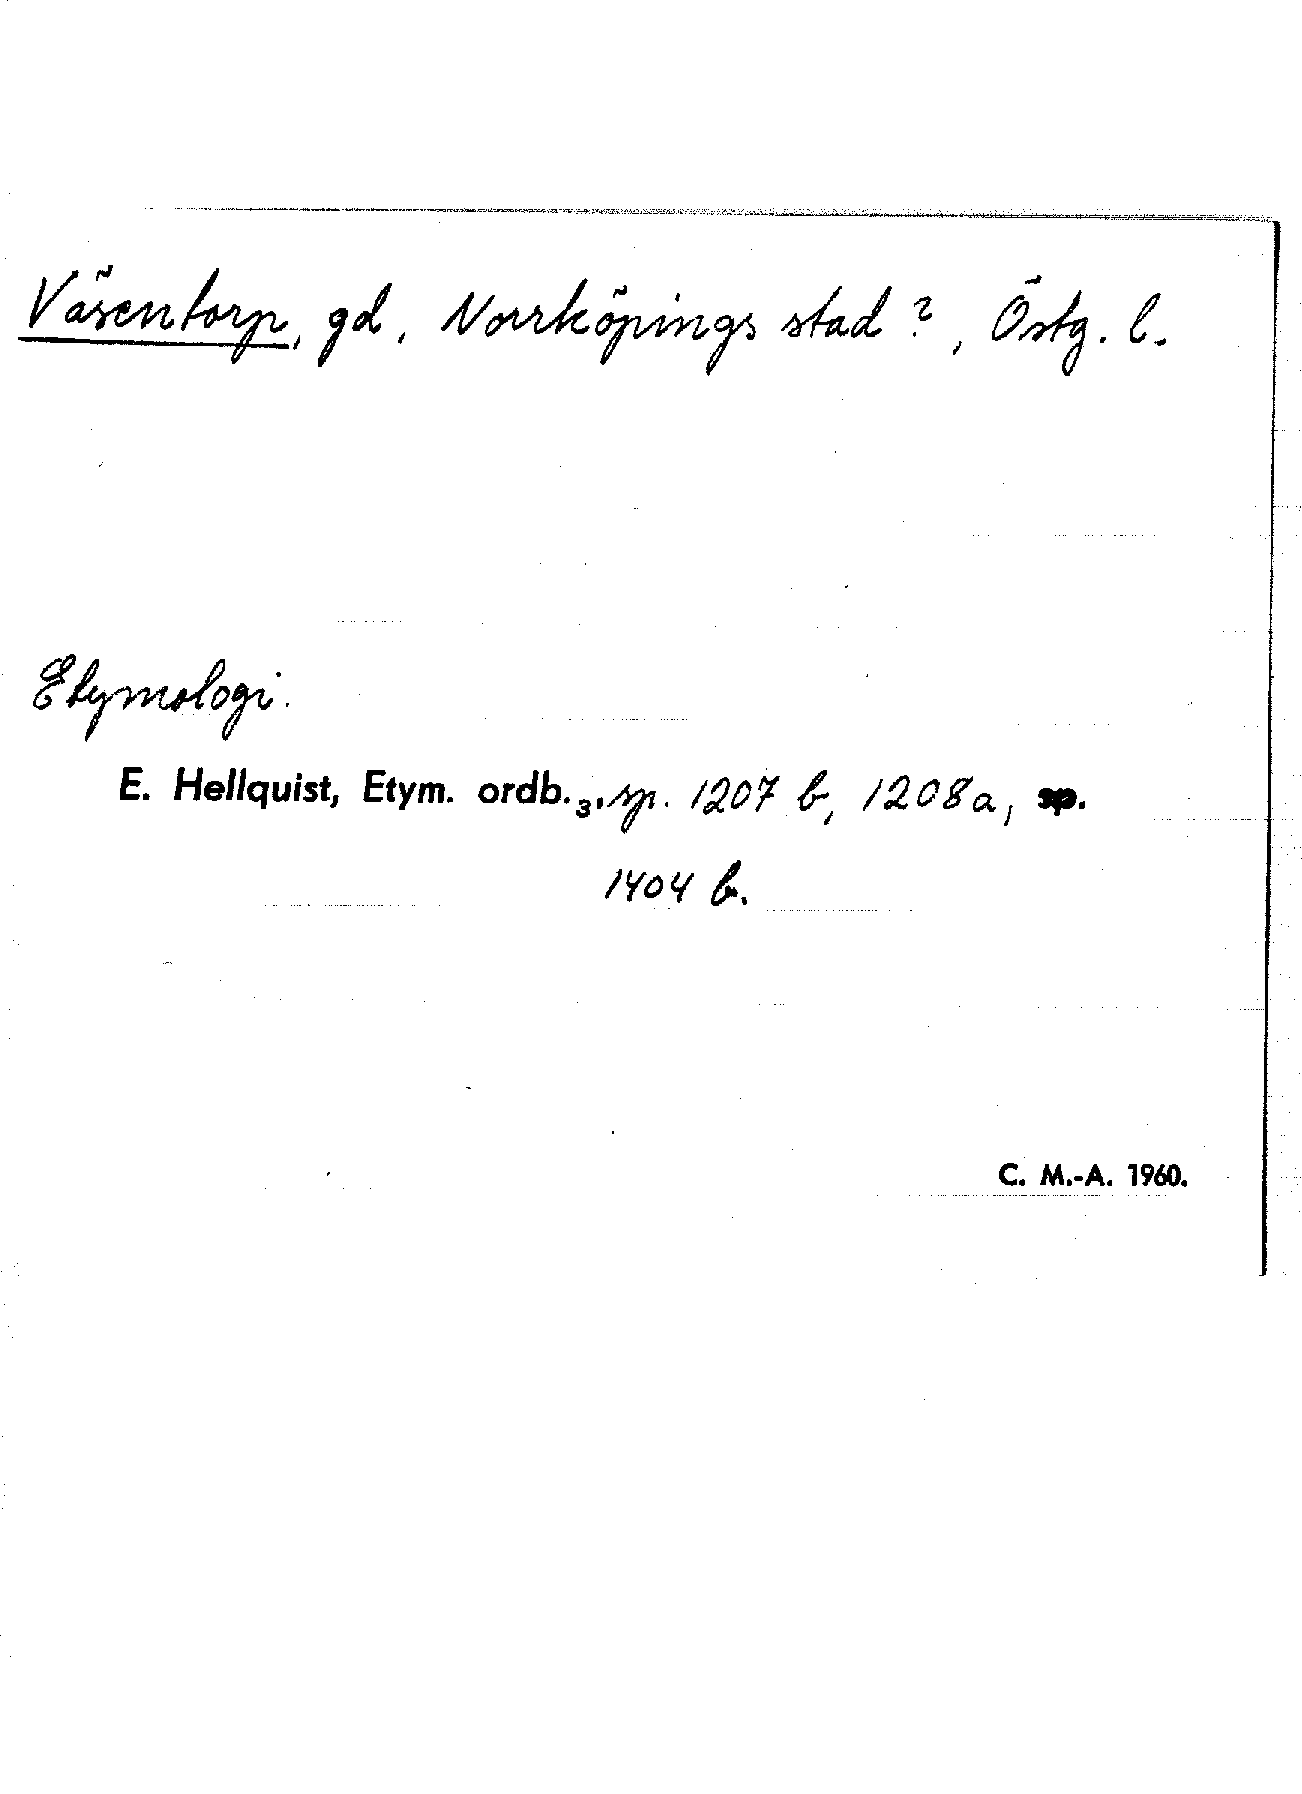 Väsentorp, gd, Norrköpings stad?, Östg. l.
Etymologi.
E. Hellquist, Etym. ordb.3, sp. 1207 b, 1208a,
1404 b.
C. M.-A. 1960.